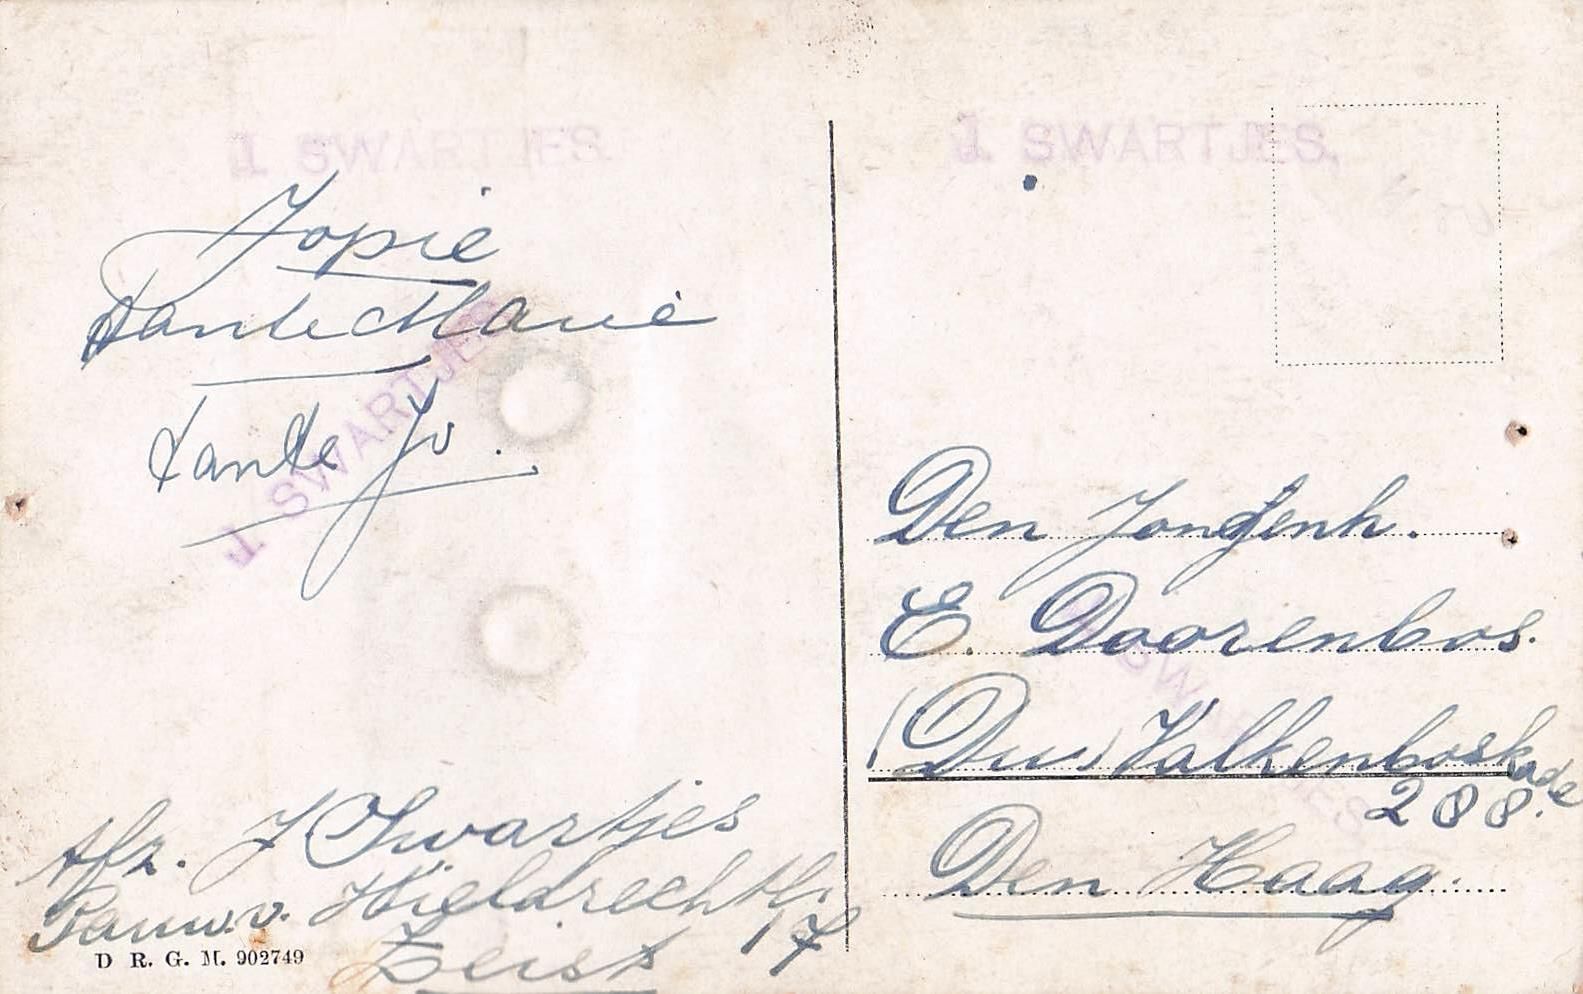 J. SWARTJES.
Jopie
Tante Marie
J. SWARTJES
tante Jo.
Afz. J Swartjes
Pauw. v. Wieldrechtln.
17
Zeist
D R. G. M. 902749
J. SWARTJES.
Den Jongenh.
E. Doorenbos.
(Duu) Valkenboskade
288.
Den Haag.